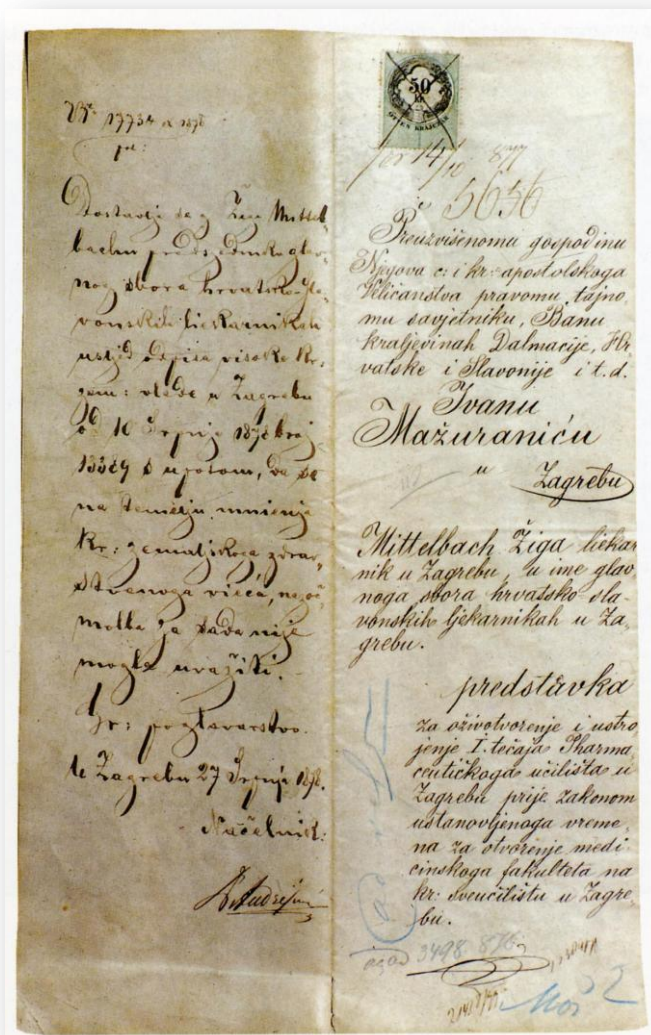 Br. 17734 ex 1878
Dostavlja se g. Žigi Mittel-
bachu predsjedniku glav-
nog sbora hrvatsko-sla-
vonskih ljekarnikah
usljed odpisa visoke kr.
zem: vlade u Zagrebu
od 10 Srpnja 1878 broj
s uputom, da se
na temelju mnienja
kr: zemaljskoga zdrav-
stvenoga vieća,
molba za sada nije
mogla uvažiti.
Gr: poglavarstvo.
U Zagrebu 27 Srpnja 1878.
Načelnik:
50
kr
14/10 877
5656
Preuzvišenomu gospodinu
Njegova c: i kr: apostolskoga
Veličanstva pravomu tajno-
mu savjetniku, Banu
kraljevinah Dalmacije, Hr-
vatske i Slavonije i t. d.
Ivanu
Mažuraniću
u
Zagrebu
Mittelbach Žiga ljekar
nik u Zagrebu, u ime glav
noga sbora hrvatsko sla-
vonskih ljekarnikah u Za-
grebu.
predstavka
za oživotvorenje i ustro
jenje I. tečaja Pharma
ceutičkoga učilišta u
Zagrebu prije zakonom
ustanovljenoga vreme,
na za otvorenje medi
cinskoga fakulteta na
kr: sveučilištu u Zagre-
bu.
3498 876